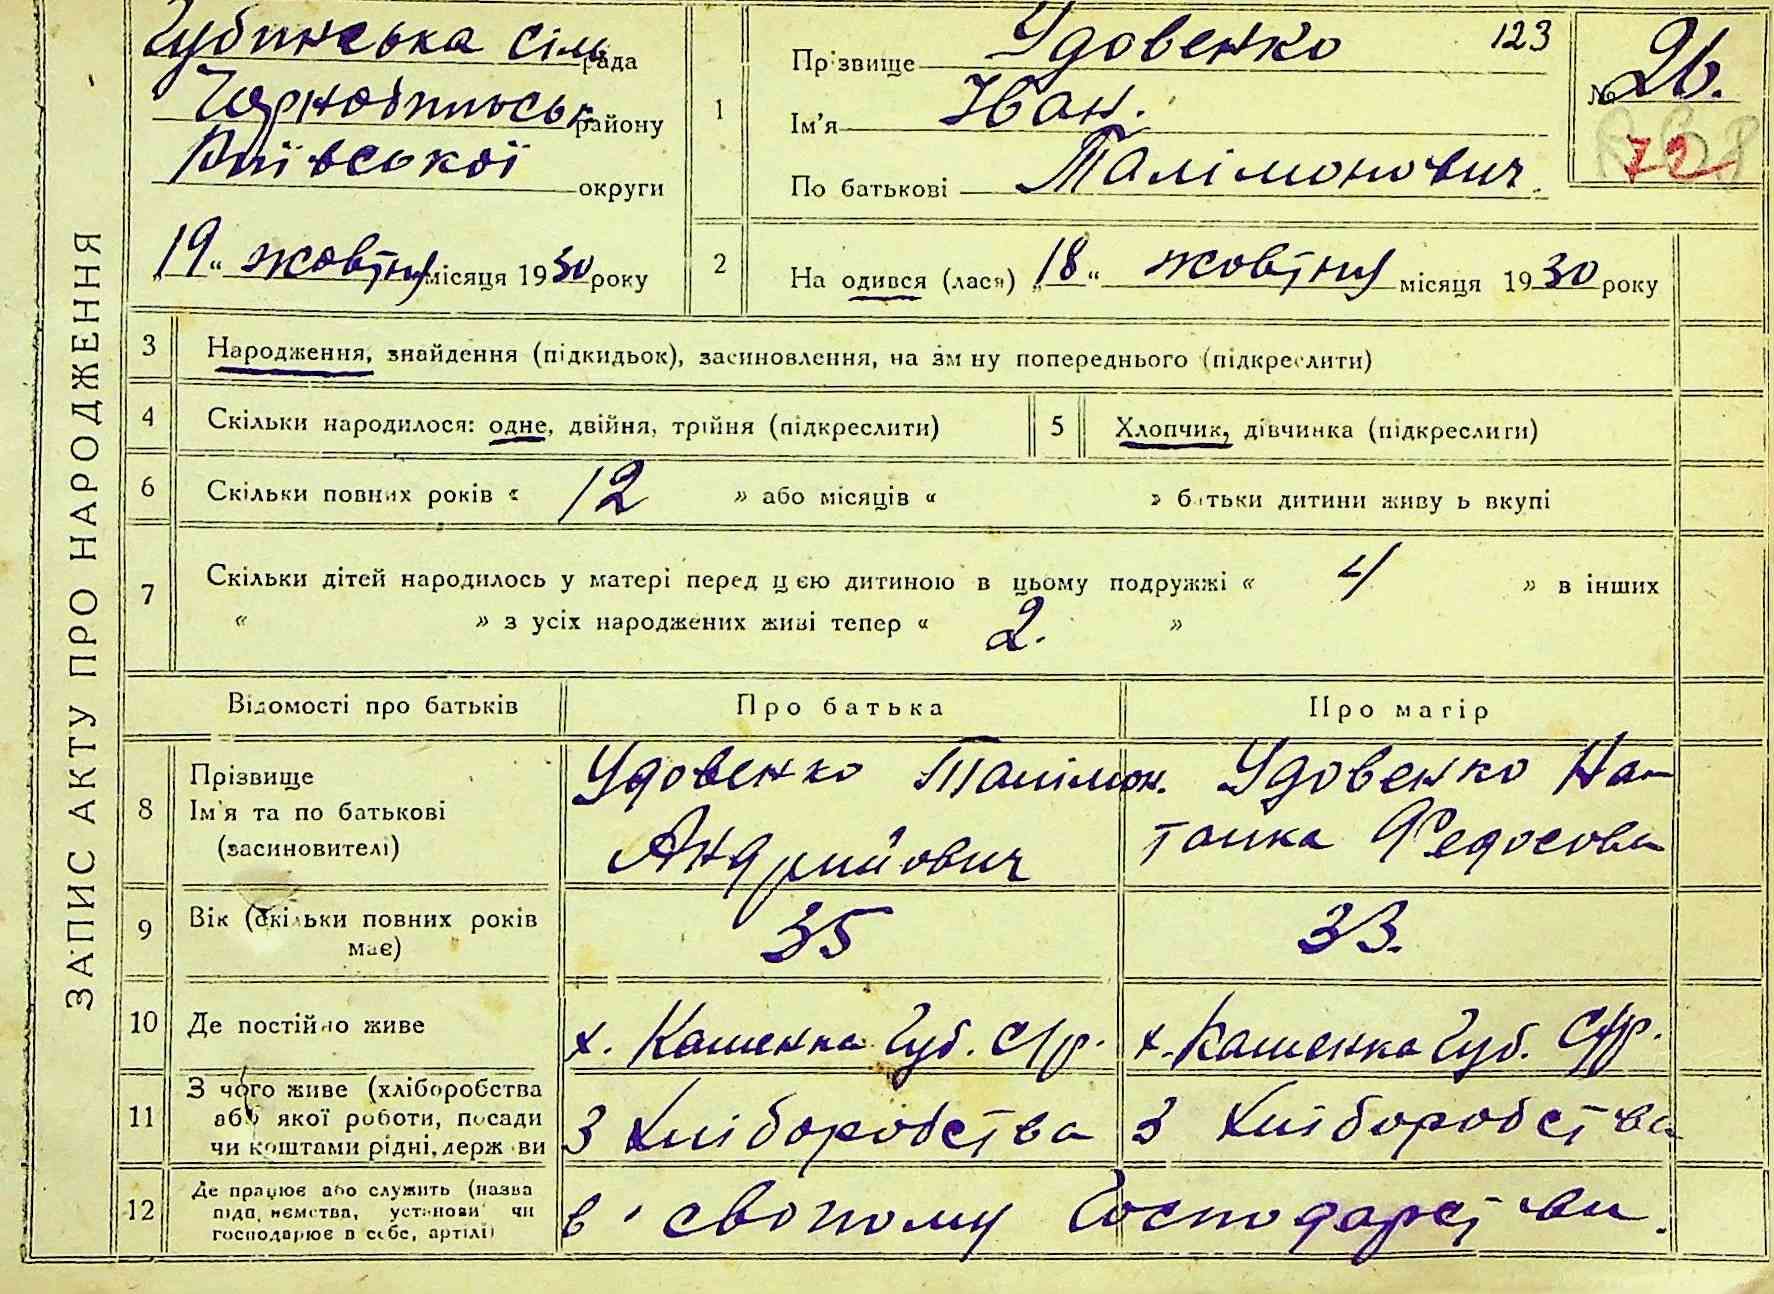 ЗАПИС АКТУ ПРО НАРОДЖЕННЯ
Губинська сіль рада
Чорнобильськ району
Київської округи
„19“ жовтня місяця 1930 року
123
1 Прізвище Удовенко
Ім'я Іван.
По батькові Талімонович.
№ 26.
72
2 На одився (лася) „18“ жовтня місяця 1930 року
3 Народження, знайдення (підкидьок), засиновлення, на зм ну попереднього (підкреслити)
4 Скільки народилося: одне, двійня, трійня (підкреслити)
5 Хлопчик, дівчинка (підкреслити)
6 Скільки повних років « 12 » або місяців « » батьки дитини живу ь вкупі
7 Скільки дітей народилось у матері перед цією дитиною в цьому подружжі « 4 » в інших
« » з усіх народжених живі тепер « 2. »
Відомості про батьків Про батька Про матір
8 Прізвище
Ім'я та по батькові
(засиновителі)
Удовенко Талімон.
Андрийович
Удовенко На-
талка Федосова
9 Вік (скільки повних років
має)
35
33.
10 Де постійно живе
х. Кашенка Губ. С/р.
х. Кашенка Губ. С/р.
11 З чого живе (хліборобства
або якої роботи, посади
чи коштами рідні, держ ви
З хліборобства
З хліборобства
12 Де працює або служить (назва
підп, ємства, установи чи
господарює в себе, артілі)
в своиому господарстви.